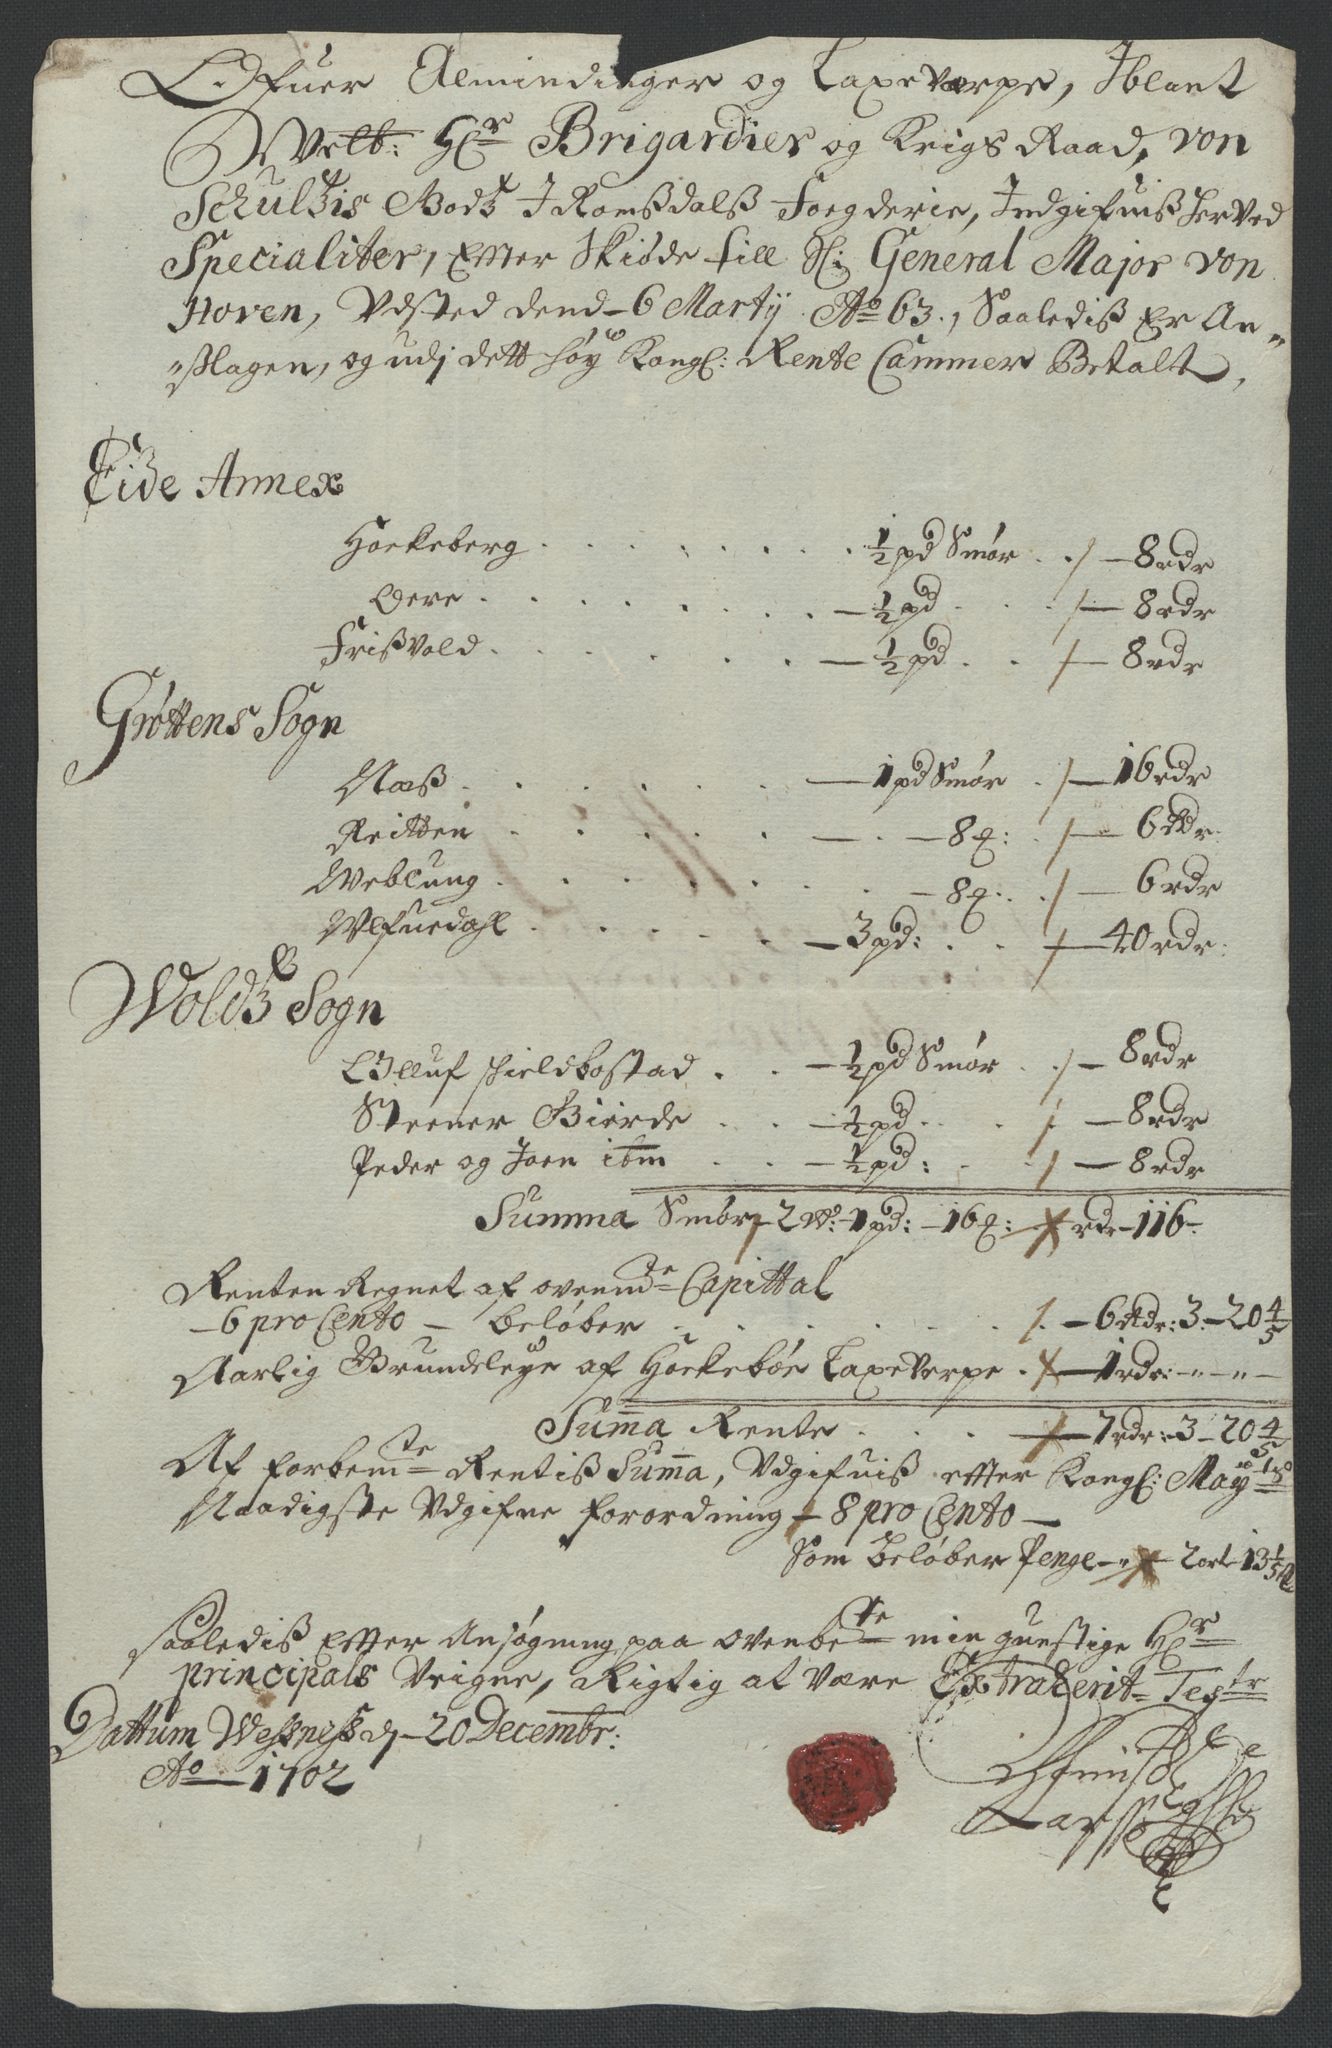 Ofuer Almindinger og Laxeværpe, Iblant
Welb: Hr Brigardier og Krigs Raad, von
Schultzis Godtz I Romßdalß Foegderie, Indgifuiß her ved
Specialiter, Efter Skiøde till Sl: General Major von
Hoven, Udsted dend 6 Martij Ao 63, Saaledis Er An-
slagen, og udj dett høy Kongl: Rente Cammer Betalt,
Eide Annex
Hoekeberg . . . ½ pd Smør . / - 8 rdr
Oere . . . - ½ pd . . / - 8 rdr
Frißvold . . . - ½ pd . . / - 8 rdr
Grøttens Sogn
Næß . . . - 1 pd Smør . / - 16 rdr
Reitten . . . - 8 : / - 6 Rdr.
Weblung . . . - 8 : . / - 6 rdr
Wlfuedahl . . . - 3 pd: . . / - 40 rdr:
Woldtz Sogn
Olluf schieldbostad . . - ½ pd Smør . / - 8 rdr
Steener Bierde . . - ½ pd . . / - 8 rdr
Peder og Joen ibm . . - ½ pd: . / - 8 rdr
Summa Smør - 2 W: - 1 pd: - 16 : rdr - 116 -
Renten Regnet af ovenmde Capittal
- 6 pro Cento - beløber . . . / - 6 Rdr: 3 - 20 4/5
Aarlig Grundeleye af Hoekebøe Laxeverpe . - 1 rdr: - " - " -
Summa Rente . . . / - 7 rdr: 3 - 20 4/5
Af forbemte Rentiß Summa, Udgifuiß efter Kongl: Mayts
Naadigste Udgifne forordning - 8 pro Cento -
Som beløber Penge - " - 2 ort 13 1/5
saaledis Efter Ansøgning paa ovenbete min gunstige Hr
principals Veigne, Rigtig at være Extraderit Testr
Dattum Weßneß d - 20 Decembr:
Ao - 1702